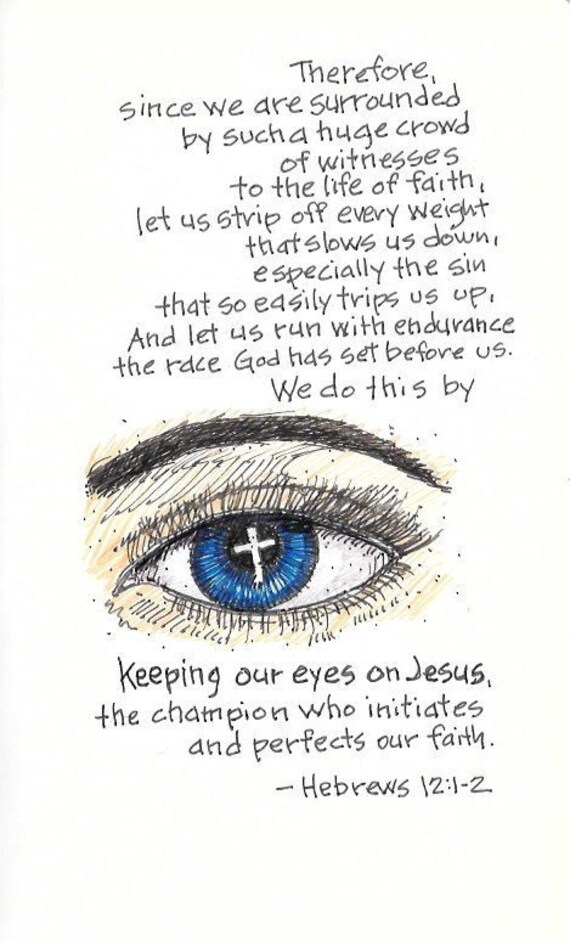 Therefore,
since we are surrounded
by such a huge crowd
of witnesses
to the life of faith,
let us strip off every weight
that slows us down,
especially the sin
that so easily trips us up,
And let us run with endurance
the race God has set before us.
We do this by
Keeping our eyes on Jesus,
the champion who initiates
and perfects our faith.
- Hebrews 12:1-2